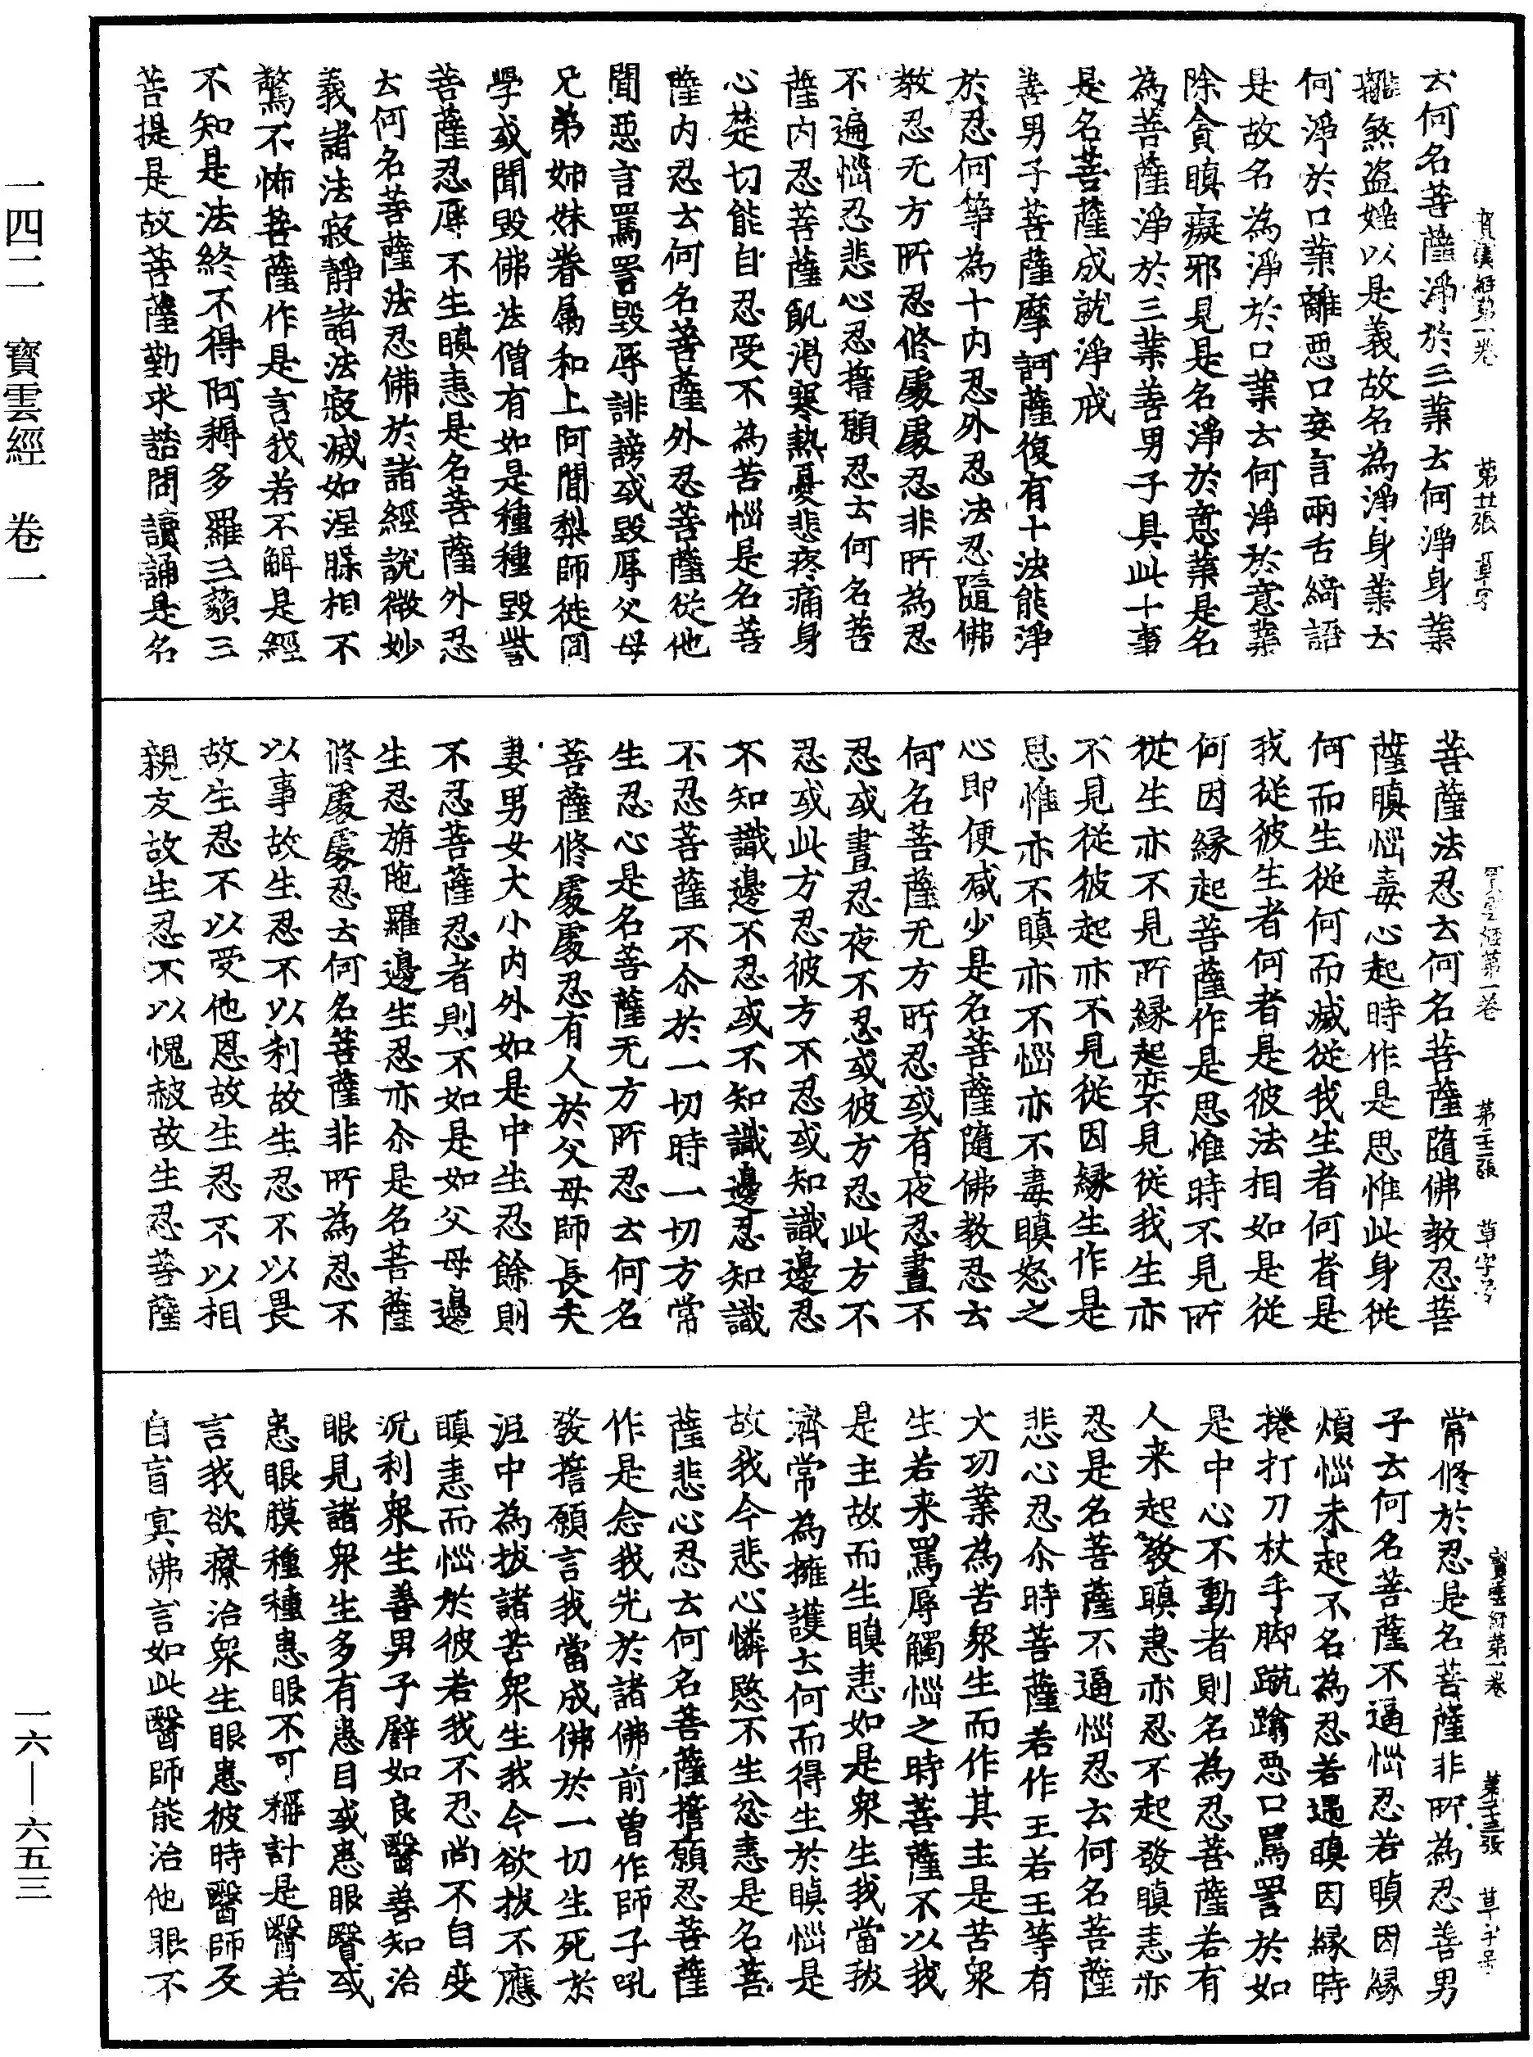 一四二　寳雲經　卷一
云何名菩薩淨於三業云何淨身業
離煞盜婬以是義故名為淨身業云
何淨於口業離惡口妄言兩舌綺語
是故名為淨於口業云何淨於意業
除貪瞋癡邪見是名淨於意業是名
為菩薩淨於三業善男子具此十事
是名菩薩成就淨戒
善男子菩薩摩訶薩復有十法能淨
於忍何等為十內忍外忍法忍隨佛
教忍无方所忍修處處忍非所為忍
不逼惱忍悲心忍擔願忍云何名菩
薩內忍菩薩飢渴寒熱憂悲疼痛身
心楚切能自忍受不為苦惱是名菩
薩內忍云何名菩薩外忍菩薩從他
聞惡言罵詈毀辱誹謗或毀辱父母
兄弟姊妹眷属和上阿闍梨師徒同
學或聞毀佛法僧有如是種種毀呰
菩薩忍辱不生瞋恚是名菩薩外忍
云何名菩薩法忍佛於諸經說微妙
義諸法寂靜諸法寂滅如涅槃相不
驚不怖菩薩作是言我若不解是經
不知是法終不得阿耨多羅三藐三
菩提是故菩薩勤求諮問讀誦是名
寶雲經第一卷　第二張　草字号
菩薩法忍云何名菩薩隨佛教忍菩
薩瞋惱毒心起時作是思惟此身從
何而生從何而滅從我生者何者是
我從彼生者何者是彼法相如是從
何因緣起菩薩作是思惟時不見所
從生亦不見所緣起亦不見從我生亦
不見從彼起亦不見從因緣生作是
思惟亦不瞋亦不惱亦不毒瞋怒之
心即便減少是名菩薩隨佛教忍云
何名菩薩无方所忍或有夜忍晝不
忍或晝忍夜不忍或彼方忍此方不
忍或此方忍彼方不忍或知識邊忍
不知識邊不忍或不知識邊忍知識
不忍菩薩不尒於一切時一切方常
生忍心是名菩薩无方所忍云何名
菩薩修處處忍有人於父母師長夫
妻男女大小內外如是中生忍餘則
不忍菩薩忍者則不如是如父母邊
生忍旃陁羅邊生忍亦尒是名菩薩
修處處忍云何名菩薩非所為忍不
以事故生忍不以利故生忍不以畏
故生忍不以受他恩故生忍不以相
親友故生忍不以愧赧故生忍菩薩
常修於忍是名菩薩非所為忍善男
子云何名菩薩不逼惱忍若瞋因緣
煩惱未起不名為忍若遇瞋因緣時
捲打刀杖手脚蹴蹹惡口罵詈於如
是中心不動者則名為忍菩薩若有
人来起發瞋恚亦忍不起發瞋恚亦
忍是名菩薩不逼惱忍云何名菩薩
悲心忍尒時菩薩若作王若王等有
大功業為苦眾生而作其主是苦眾
生若来罵辱觸惱之時菩薩不以我
是主故而生瞋恚如是眾生我當拔
濟常為擁護云何而得生於瞋惱是
故我今悲心憐愍不生忿恚是名菩
薩悲心忍云何名菩薩擔願忍菩薩
作是念我先於諸佛前曾作師子吼
發擔願言我當成佛於一切生死於
泥中為拔諸苦眾生我今欲拔不應
瞋恚而惱於彼若我不忍尚不自度
況利眾生善男子譬如良醫善知治
眼見諸眾生多有患目或患眼瞖或
患眼膜種種患眼不可稱計是醫若
言我欲療治眾生眼患彼時醫師反
自盲冥佛言如此醫師能治他眼不
一六—六五三